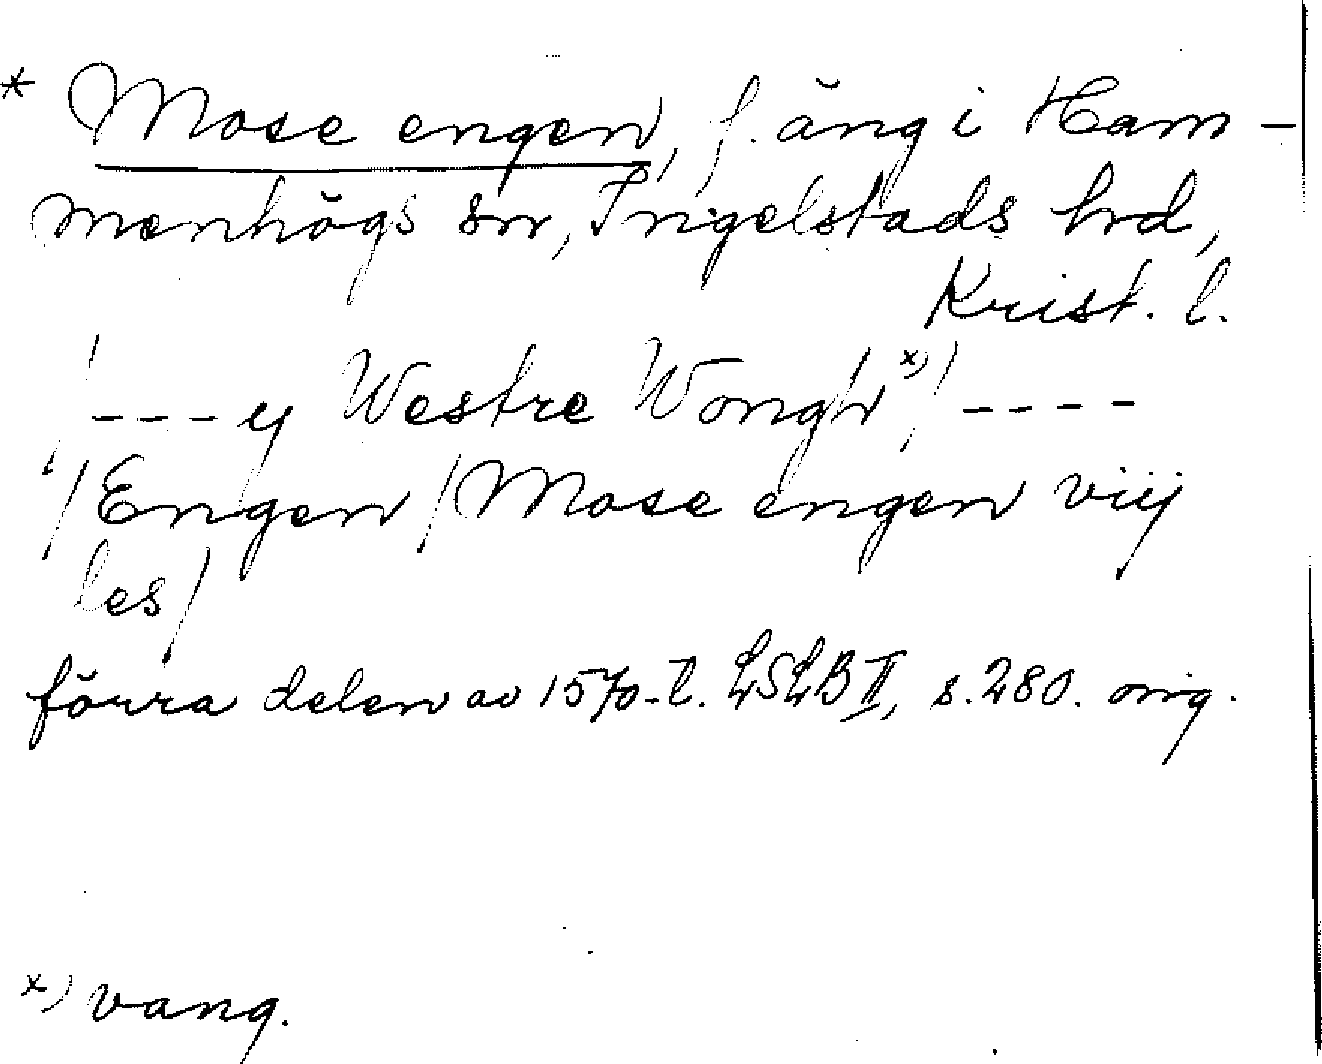 * Mose engen, f. äng i Ham-
menhögs sn, Ingelstads hd,
Krist. l.
/---y Westre Wongh x)/----
"/Engen/Mose engen viij
les/
förra delen av 1570-t. LSLB II, s. 280. orig.
x) vang.